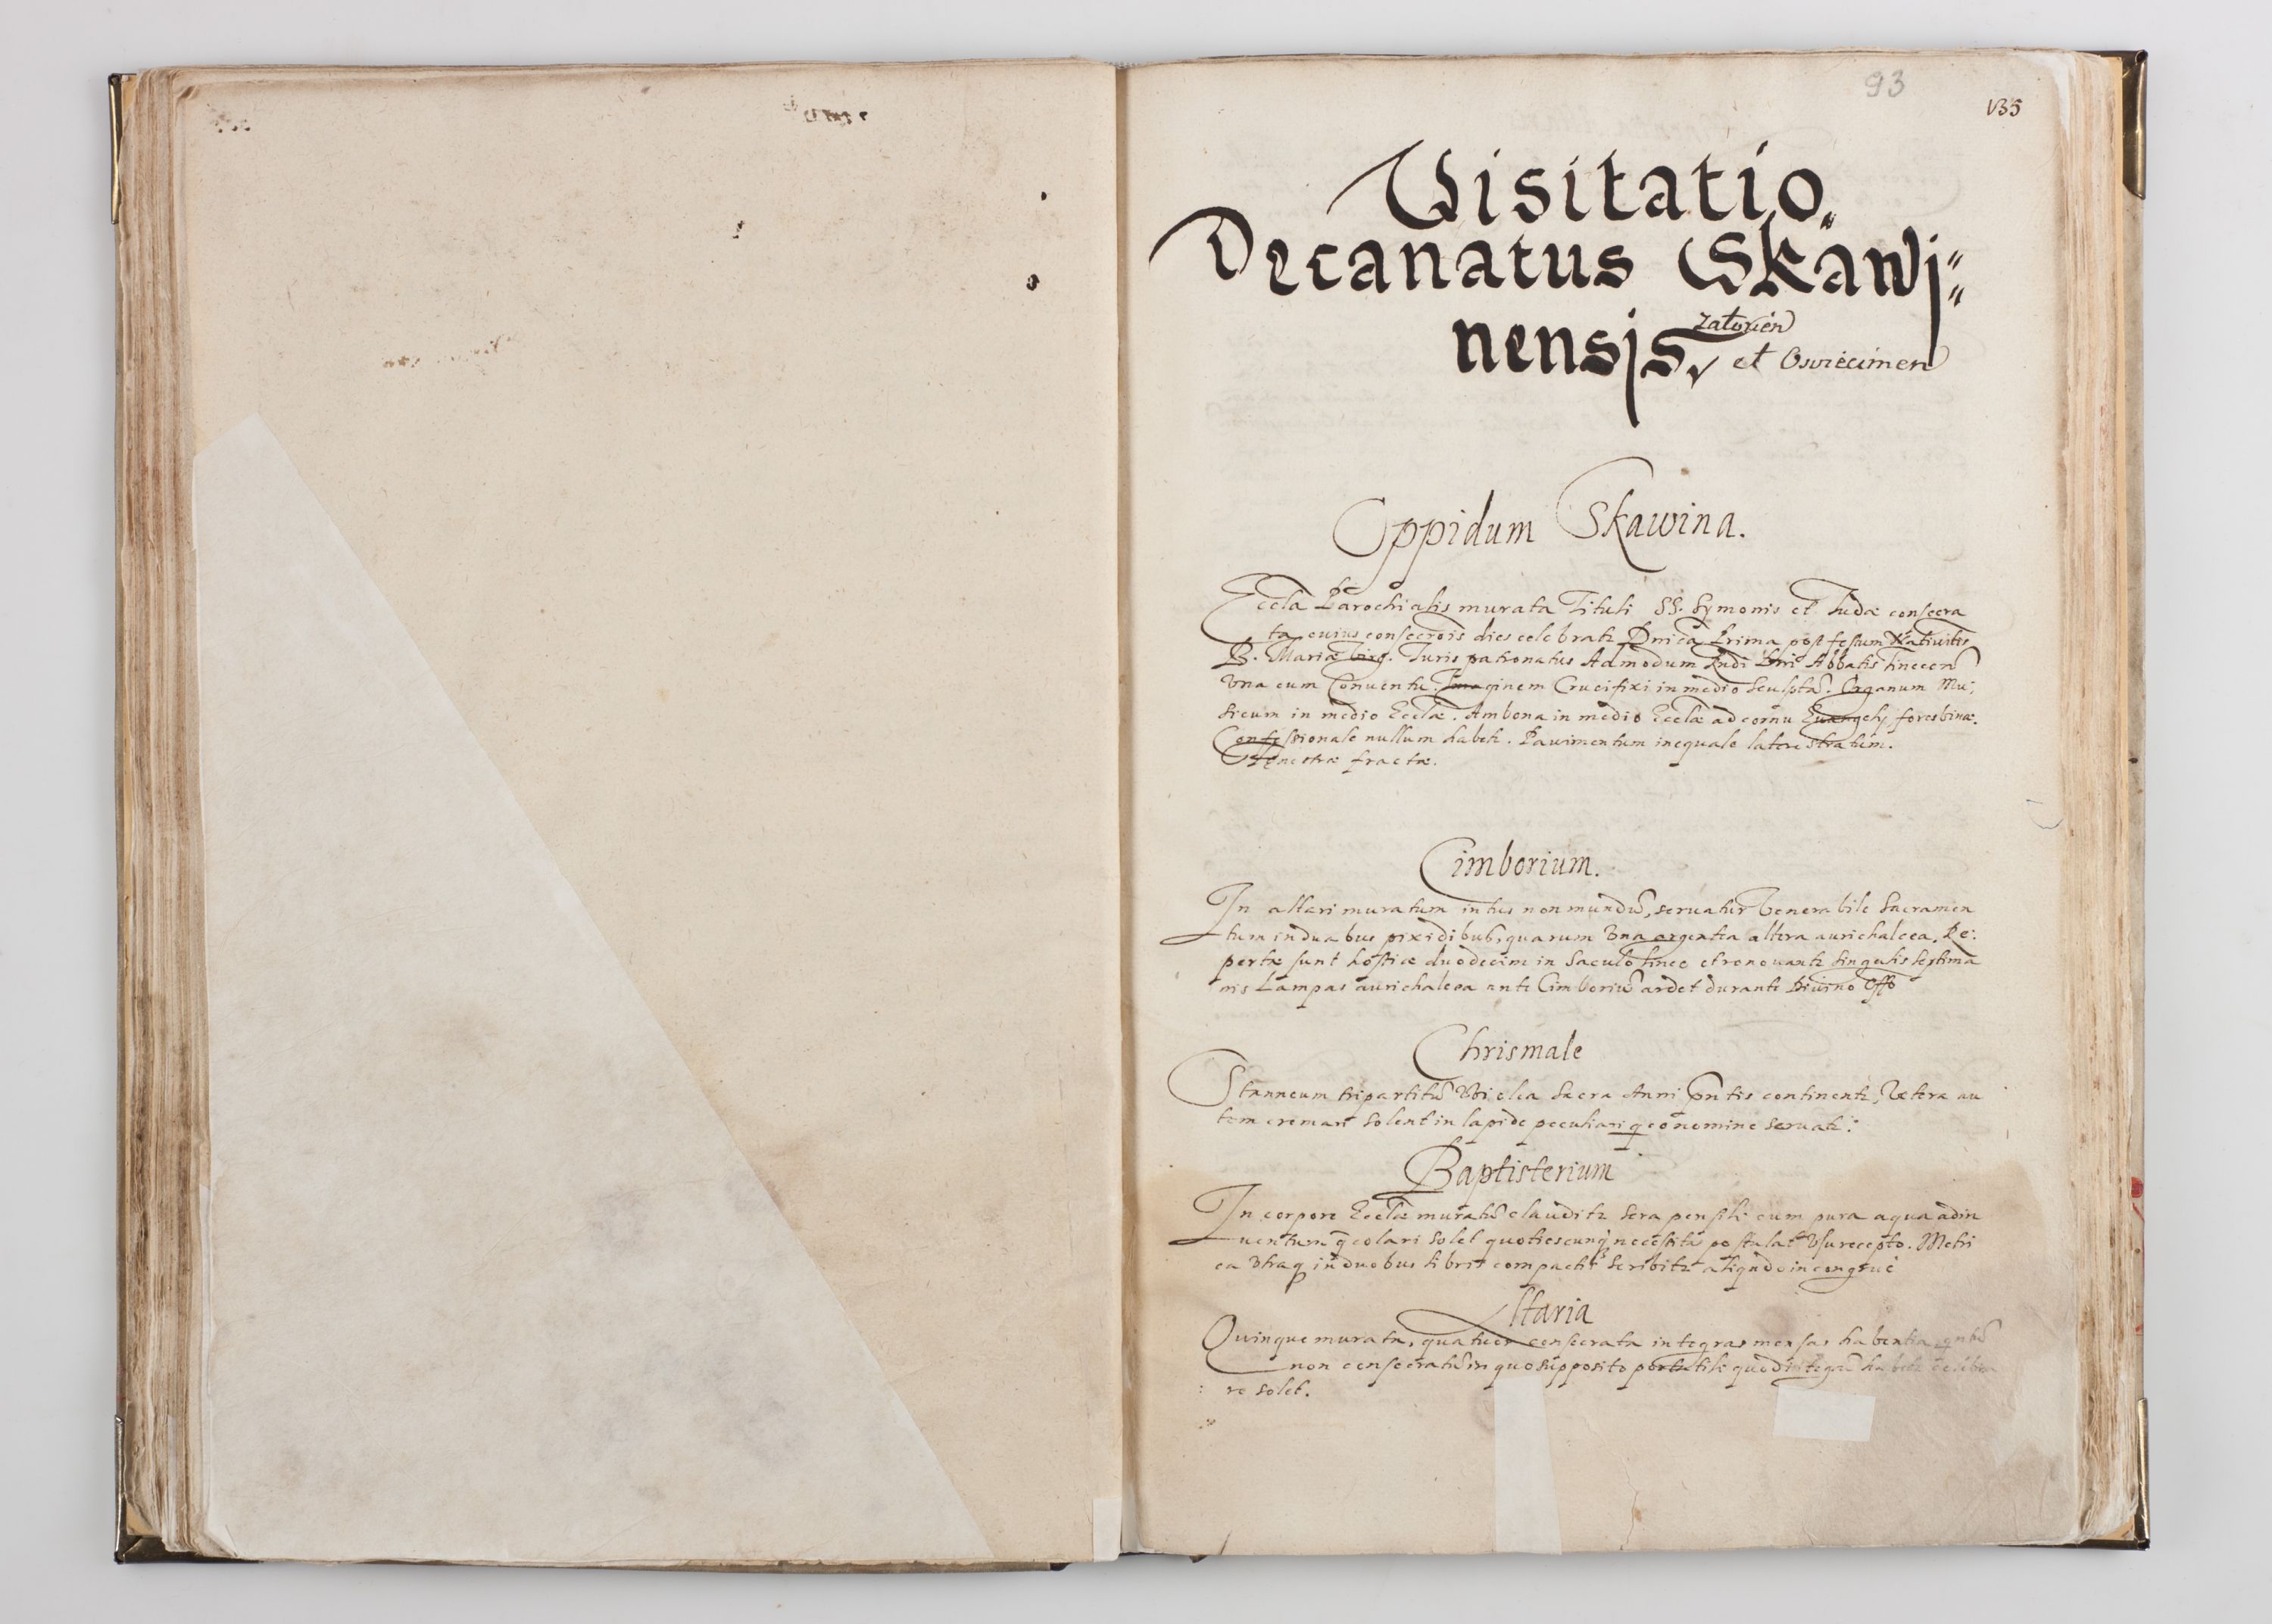 93
135
Visitatio
Decanatus Skawi=
nensis, Zatorien
et Osviecimen
Oppidum Skawina.
Eccla Parochialis murata Tituli SS. Symonis et Judæ consecra
ta cuius consecrōis dies celebratr Dnica Prima post festum Nativitis
B. Mariæ Virg. Juris patronatus Admodum Rndi Dni Abbatis Tinecen
Vna cum Conuentu. Imaginem Crucifixi in medio sculptā. Organum Mu:
sicum in medio Ecclæ. Ambona in medio Ecclæ ad cornu Euangelij fores binæ.
Confessionale nullum habetr. Pauimentum inequale latere stratum.
Fenestræ fractæ.
Cimborium.
In altari muratum intus non mundū, seruatur Venerabile Sacramen
tum in duabus pixidibus, quarum Vna argentea altera aurichalcea. Re:
pertæ sunt hostiæ duodecim in Saculo lineo et renouantr singulis septima
nis Lampas aurichalcea ante Cimboriū ardet durante Diuino Offo
Chrismale
Stanneum tripartitū Vbi olea Sacra Anni pntis continentr, Vetera au
tem cremari solent in lapide peculiari q eo nomine seruatr:
Baptisterium
In corpore Ecclæ muratū clauditr sera pensili cum pura aqua ad in
uentum q colari solet quotiescunq necessitas postulat Vsu recepto. Metri
ca Vtraq in duobus libris compactis scribitr aliqndo incongrue
Altaria
Quinque murata, quatuor consecrata integras mensas habentia
non consecratū in quo supposito portatili quod integrū habetr celebra
re solet.